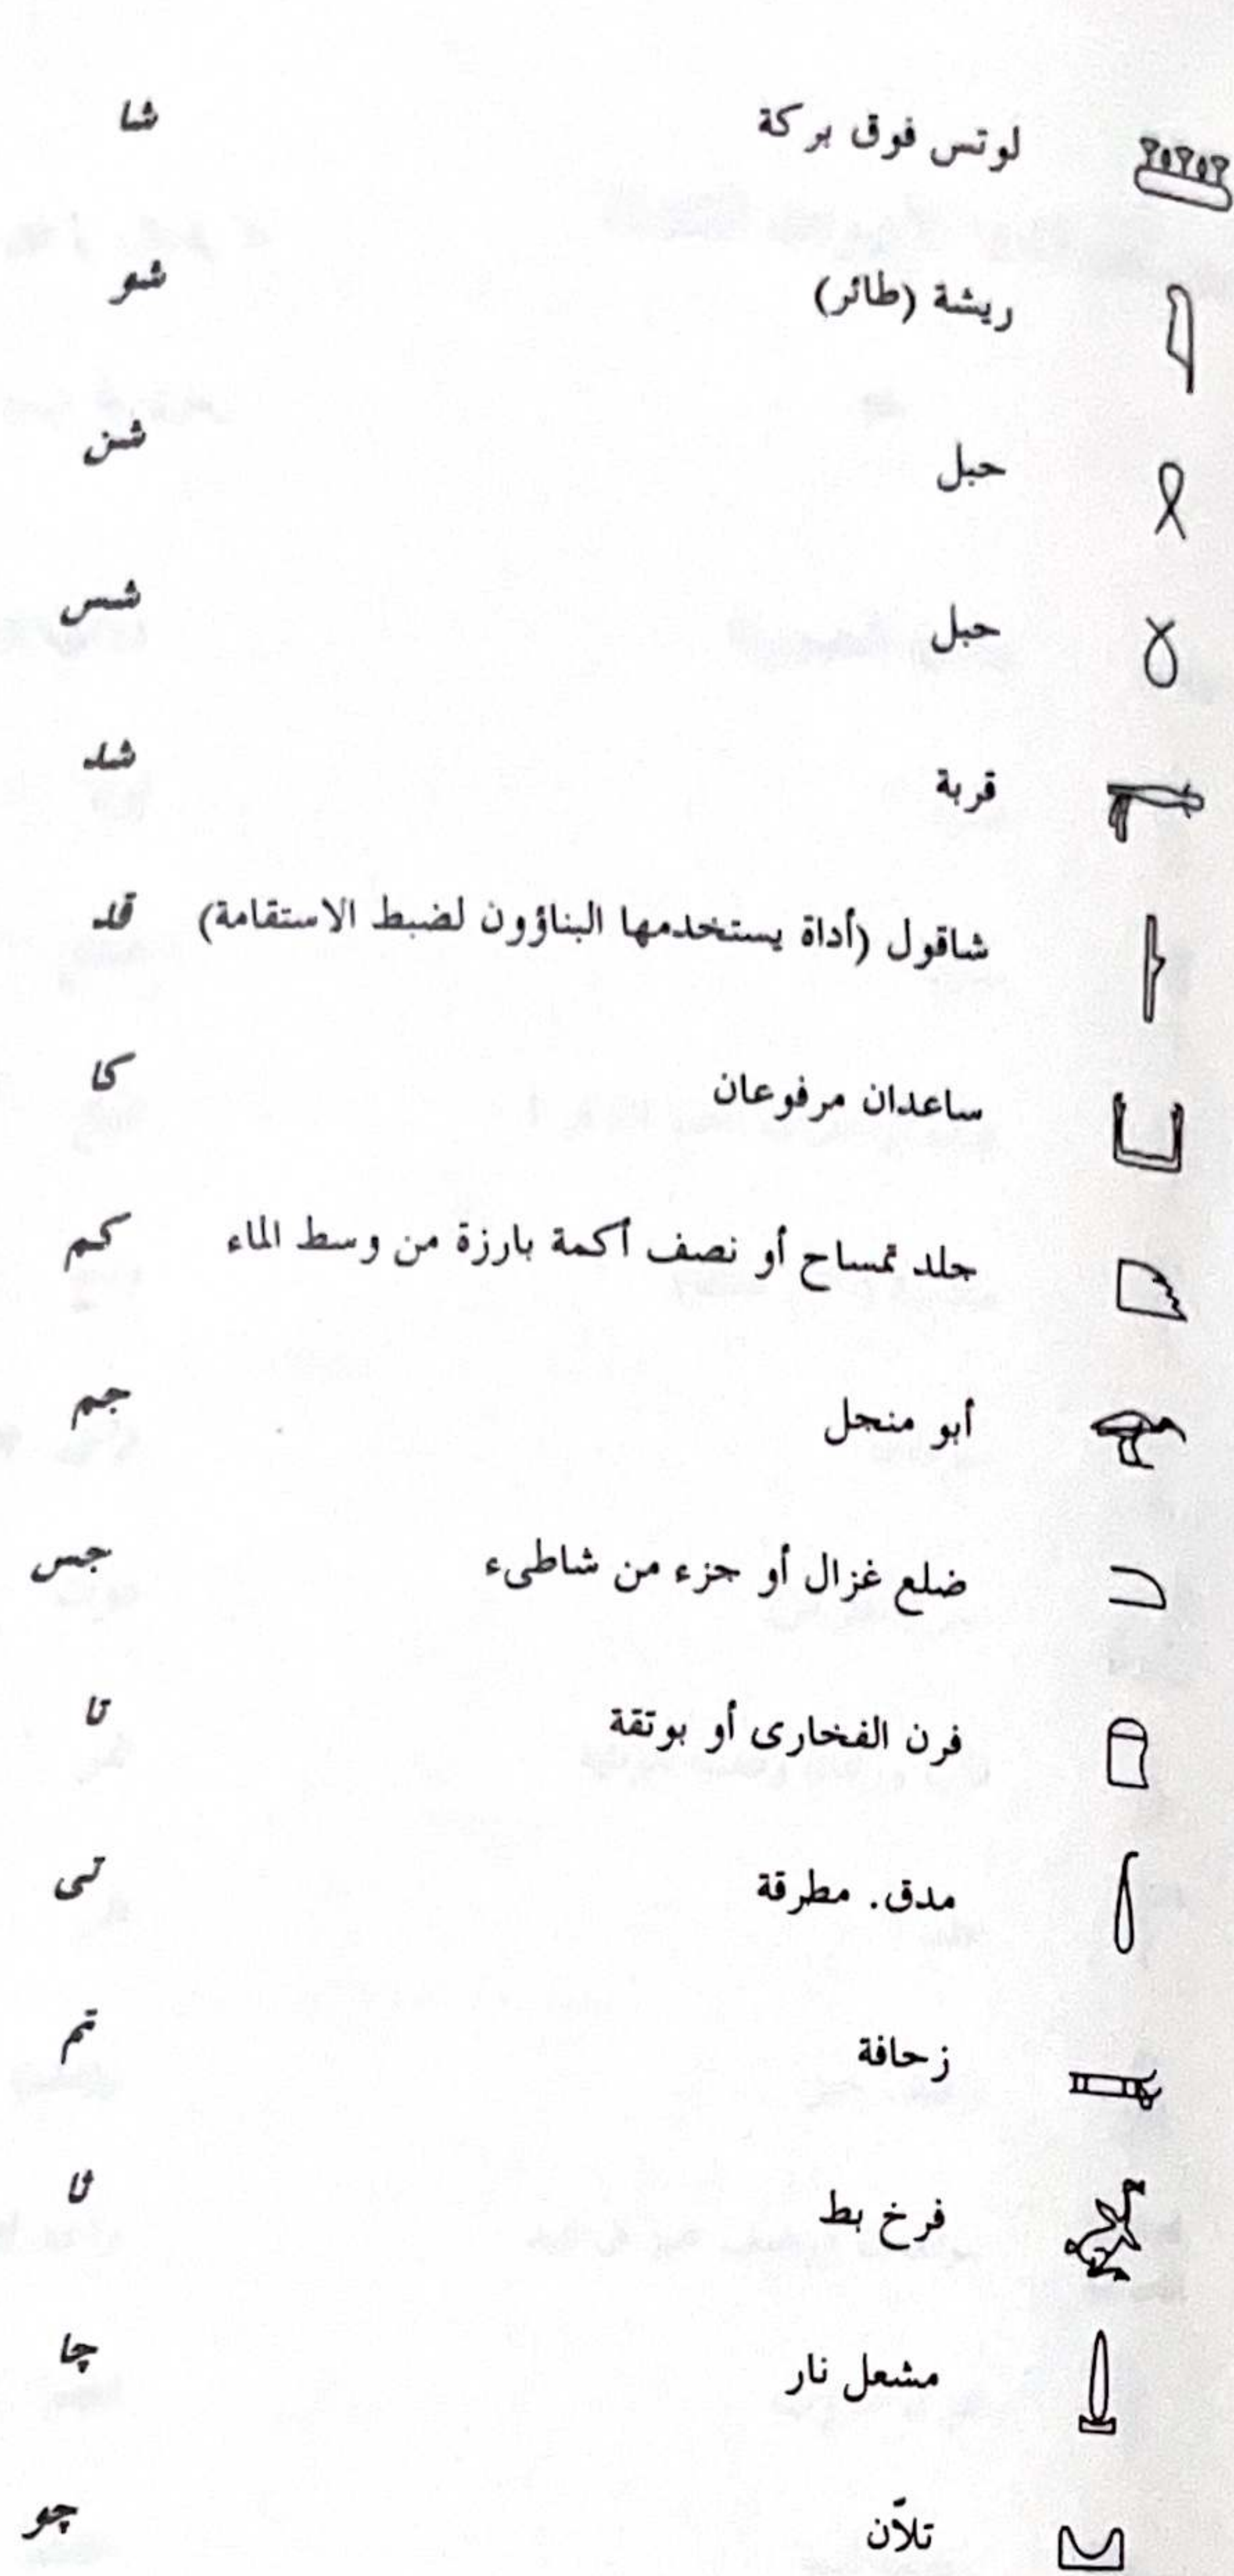 لوتس فوق بركة شا
ريشة (طائر) شو
حبل شن
حبل شس
قربة شد
شاقول (أداة يستخدمها البناؤون لضبط الاستقامة) قد
ساعدان مرفوعان كا
جلد تمساح أو نصف أكمة بارزة من وسط الماء كم
أبو منجل جم
ضلع غزال أو جزء من شاطىء جس
فرن الفخارى أو بوتقة تا
مدق. مطرقة تى
زحافة تم
فرخ بط ثا
مشعل نار چا
تلاّن چو